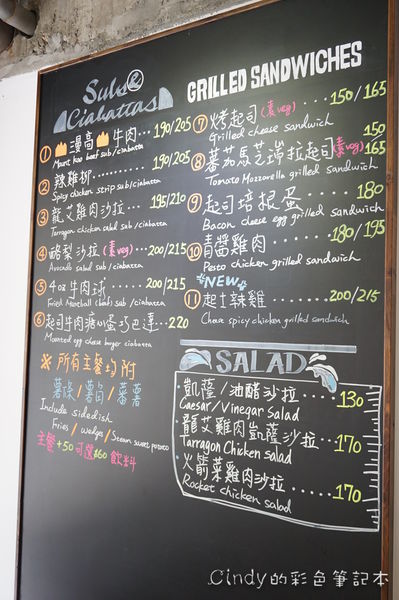 Subs &
Ciabattas
① 漫高 牛肉...190/205
Mount koo beef sub/ciabatta
② 辣雞柳......190/205
Spicy chicken strip sub/ciabatta
③ 龍艾雞肉沙拉...195/210
Tarragon chicken salad sub/ciabatta
④ 酪梨沙拉(素veg)...200/215
Avocado salad sub/ciabatta
⑤ 4oz牛肉球......200/215
Fried Meatball (beef) sub/ciabatta
⑥ 起司牛肉 蛋巧巴達..220
egg burger ciabatta
※ 所有主餐均附
薯條/薯角/蕃薯
Include sidedish
Fries / wedge / Steam sweet potato
主餐+50可選$60飲料
GRILLED SANDWICHES
⑦ 烤起司(素veg)...150/165
Grilled cheese sandwich
⑧ 蕃茄馬芝瑞拉起司(素veg) 150
165
Tomato Mozzarella grilled sandwich
⑨ 起司培根蛋......180
Bacon cheese egg grilled sandwich
⑩ 青醬雞肉......180/195
Pesto chicken grilled sandwich
"NEW"
⑪ 起士辣雞......200/215
Cheese spicy chicken grilled sandwich
SALAD
凱薩/油醋沙拉....130
Caesar/Vinegar salad
龍艾雞肉凱薩沙拉..170
Tarragon Chicken salad
火箭菜雞肉沙拉....170
Rocket chicken salad
Cindy的彩色筆記本